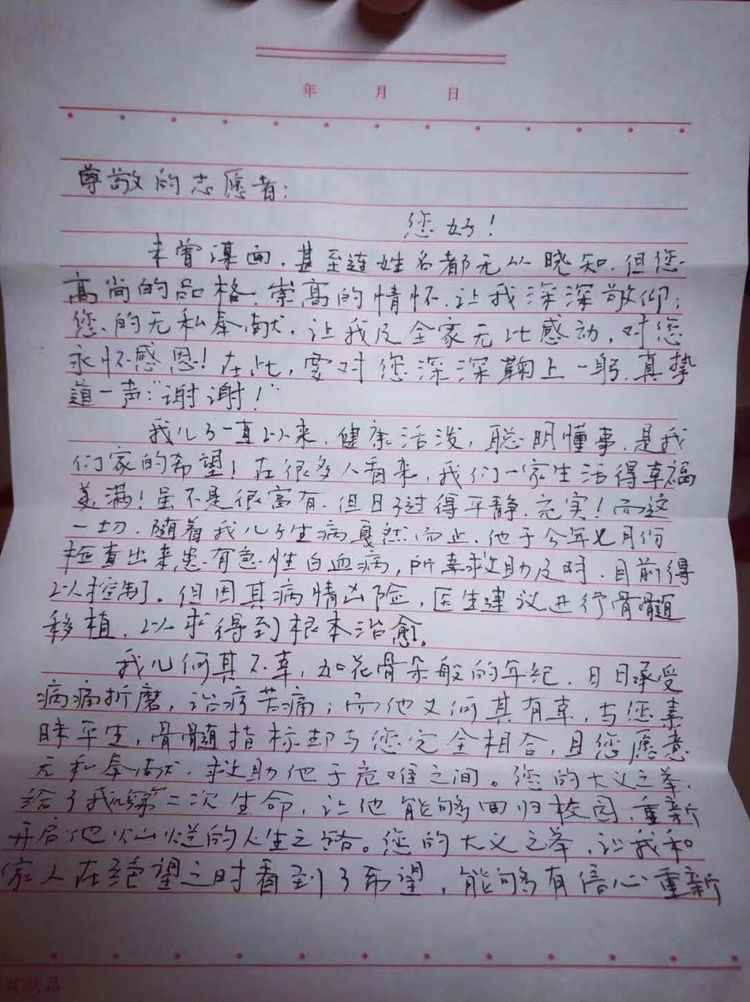 年 月 日
尊敬的志愿者:
您好!
未曾谋面,甚至连姓名都无从晓知.但您
高尚的品格,崇高的情怀,让我深深敬仰;
您的无私奉献,让我及全家无比感动,对您
永怀感恩!在此,要对您深深鞠上一躬,真挚
道一声:"谢谢!"
我儿子一直以来,健康活泼,聪明懂事,是我
们家的希望!在很多人看来,我们一家生活得幸福
美满!虽不是很富有,但日子过得平静、充实!而这
一切,随着我儿子生病戛然而止,他于今年七月份
检查出来患有急性白血病,所幸救助及时,目前得
以控制。但因其病情凶险,医生建议进行骨髓
移植,以求得到根本治愈。
我儿何其不幸,如花骨朵般的年纪,日日承受
病痛折磨,治疗苦痛;而他又何其有幸,与您素
昧平生,骨髓指标却与您完全相合,且您愿意
无私奉献,救助他于危难之间。您的大义之举,
给了我儿第二次生命,让他能够回归校园,重新
开启他灿烂的人生之路。您的大义之举,让我和
家人在绝望之时看到了希望,能够有信心重新
品